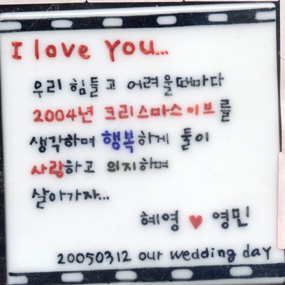 I love you...
우리 힘들고 어려울때마다
2004년 크리스마스이브를
생각하며 행복하게 둘이
사랑하고 의지하며
살아가자...
혜영 ♥ 영민
20050312 our wedding day